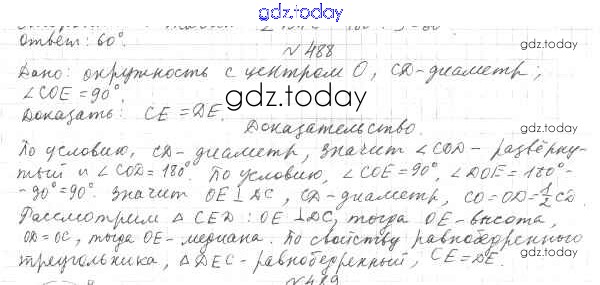 gdz.today
Ответ: 60°.
№ 488
gdz.today
Дано: окружность с центром О, CD-диаметр;
∠COE = 90°
gdz.today
Доказать: CE = DE.
Доказательство.
По условию, CD-диаметр, значит ∠COD-развёрну-
тый и ∠COD = 180°. По условию, ∠COE = 90°, ∠DOE = 180°-
-90°=90°. Значит OE⊥DC, CD-диаметр, CO=OD=1/2CD.
Рассмотрим △CED: OE⊥DC, тогда OE-высота,
OD=OC, тогда OE-медиана. По свойству равнобедренного
треугольника, △DEC-равнобедренный, CE=DE.
gdz.today
gdz.today
№489